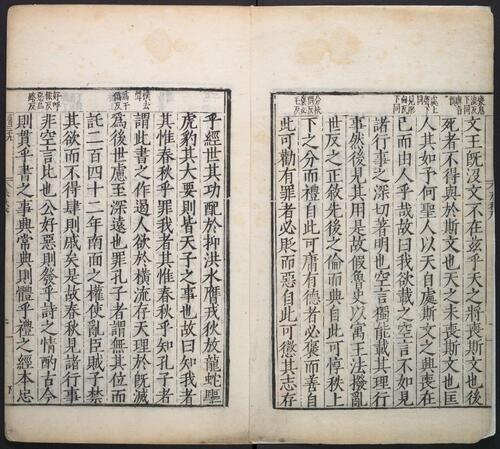 文王旣沒文不在兹乎天之將喪斯文也後
死者不得與於斯文也天之未喪斯文也匡
人其如予何聖人以天自處斯文之興喪在
己而由人乎哉故曰我欲載之空言不如見
諸行事之深切著明也空言獨能載其理行
事然後見其用是故假魯史以寓王法撥亂
世反之正敘先後之倫而典自此可惇秩上
下之分而禮自此可庸有德者必褒而善自
此可勸有罪者必貶而惡自此可懲其志存
乎經世其功配於抑洪水膺戎狄放龍蛇驅
虎豹其大要則皆天子之事也故曰知我者
其惟春秋乎罪我者其惟春秋乎知孔子者
謂此書之作遏人欲於橫流存天理於旣滅
爲後世慮至深遠也罪孔子者謂無其位而
託二百四十二年南面之權使亂臣賊子禁
其欲而不得肆則戚矣是故春秋見諸行事
非空言比也公好惡則發乎詩之情酌古今
則貫乎書之事興常典則體乎禮之經本忠